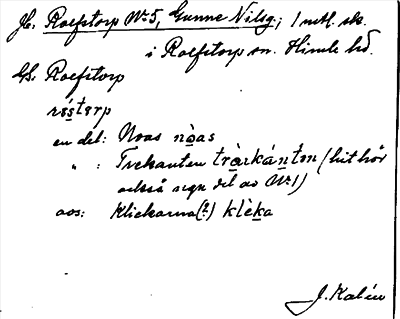 Jfr. Roefstorp Nr 5, Gunne Nilsg.; 1 mtl. sk.
i Roefstorp sn. Himle hd.
GS. Roefstorp
rė́sterp
en del: Noas nòas
" : Trekanten tràrkánten (hit hör
också negn del av Nr 1)
aos: Klickorna(?) klèka
J. Kalén